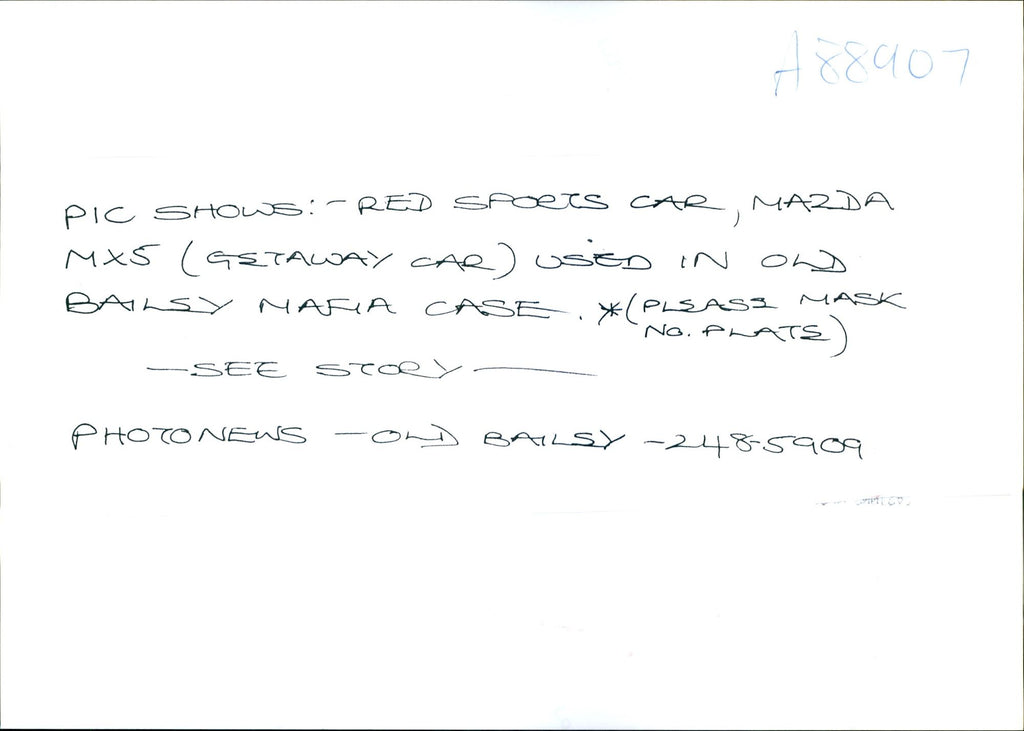 A88907
PIC SHOWS:- RED SPORTS CAR, MAZDA
MX5 (GETAWAY CAR) USED IN OLD
BAILEY MAFIA CASE. *(PLEASE MASK
NO. PLATE)
—SEE STORY——
PHOTONEWS - OLD BAILEY -248-5909